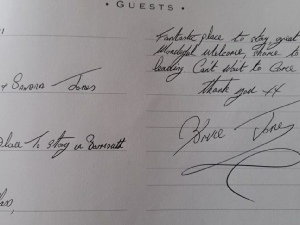 GUESTS
Fantastic place to stay great
Wonderful welcome, thanks to
leading Can't Wait to Come
thank you xx
& Sandra Jones
Bruce Jones
place To Stay in Barmouth